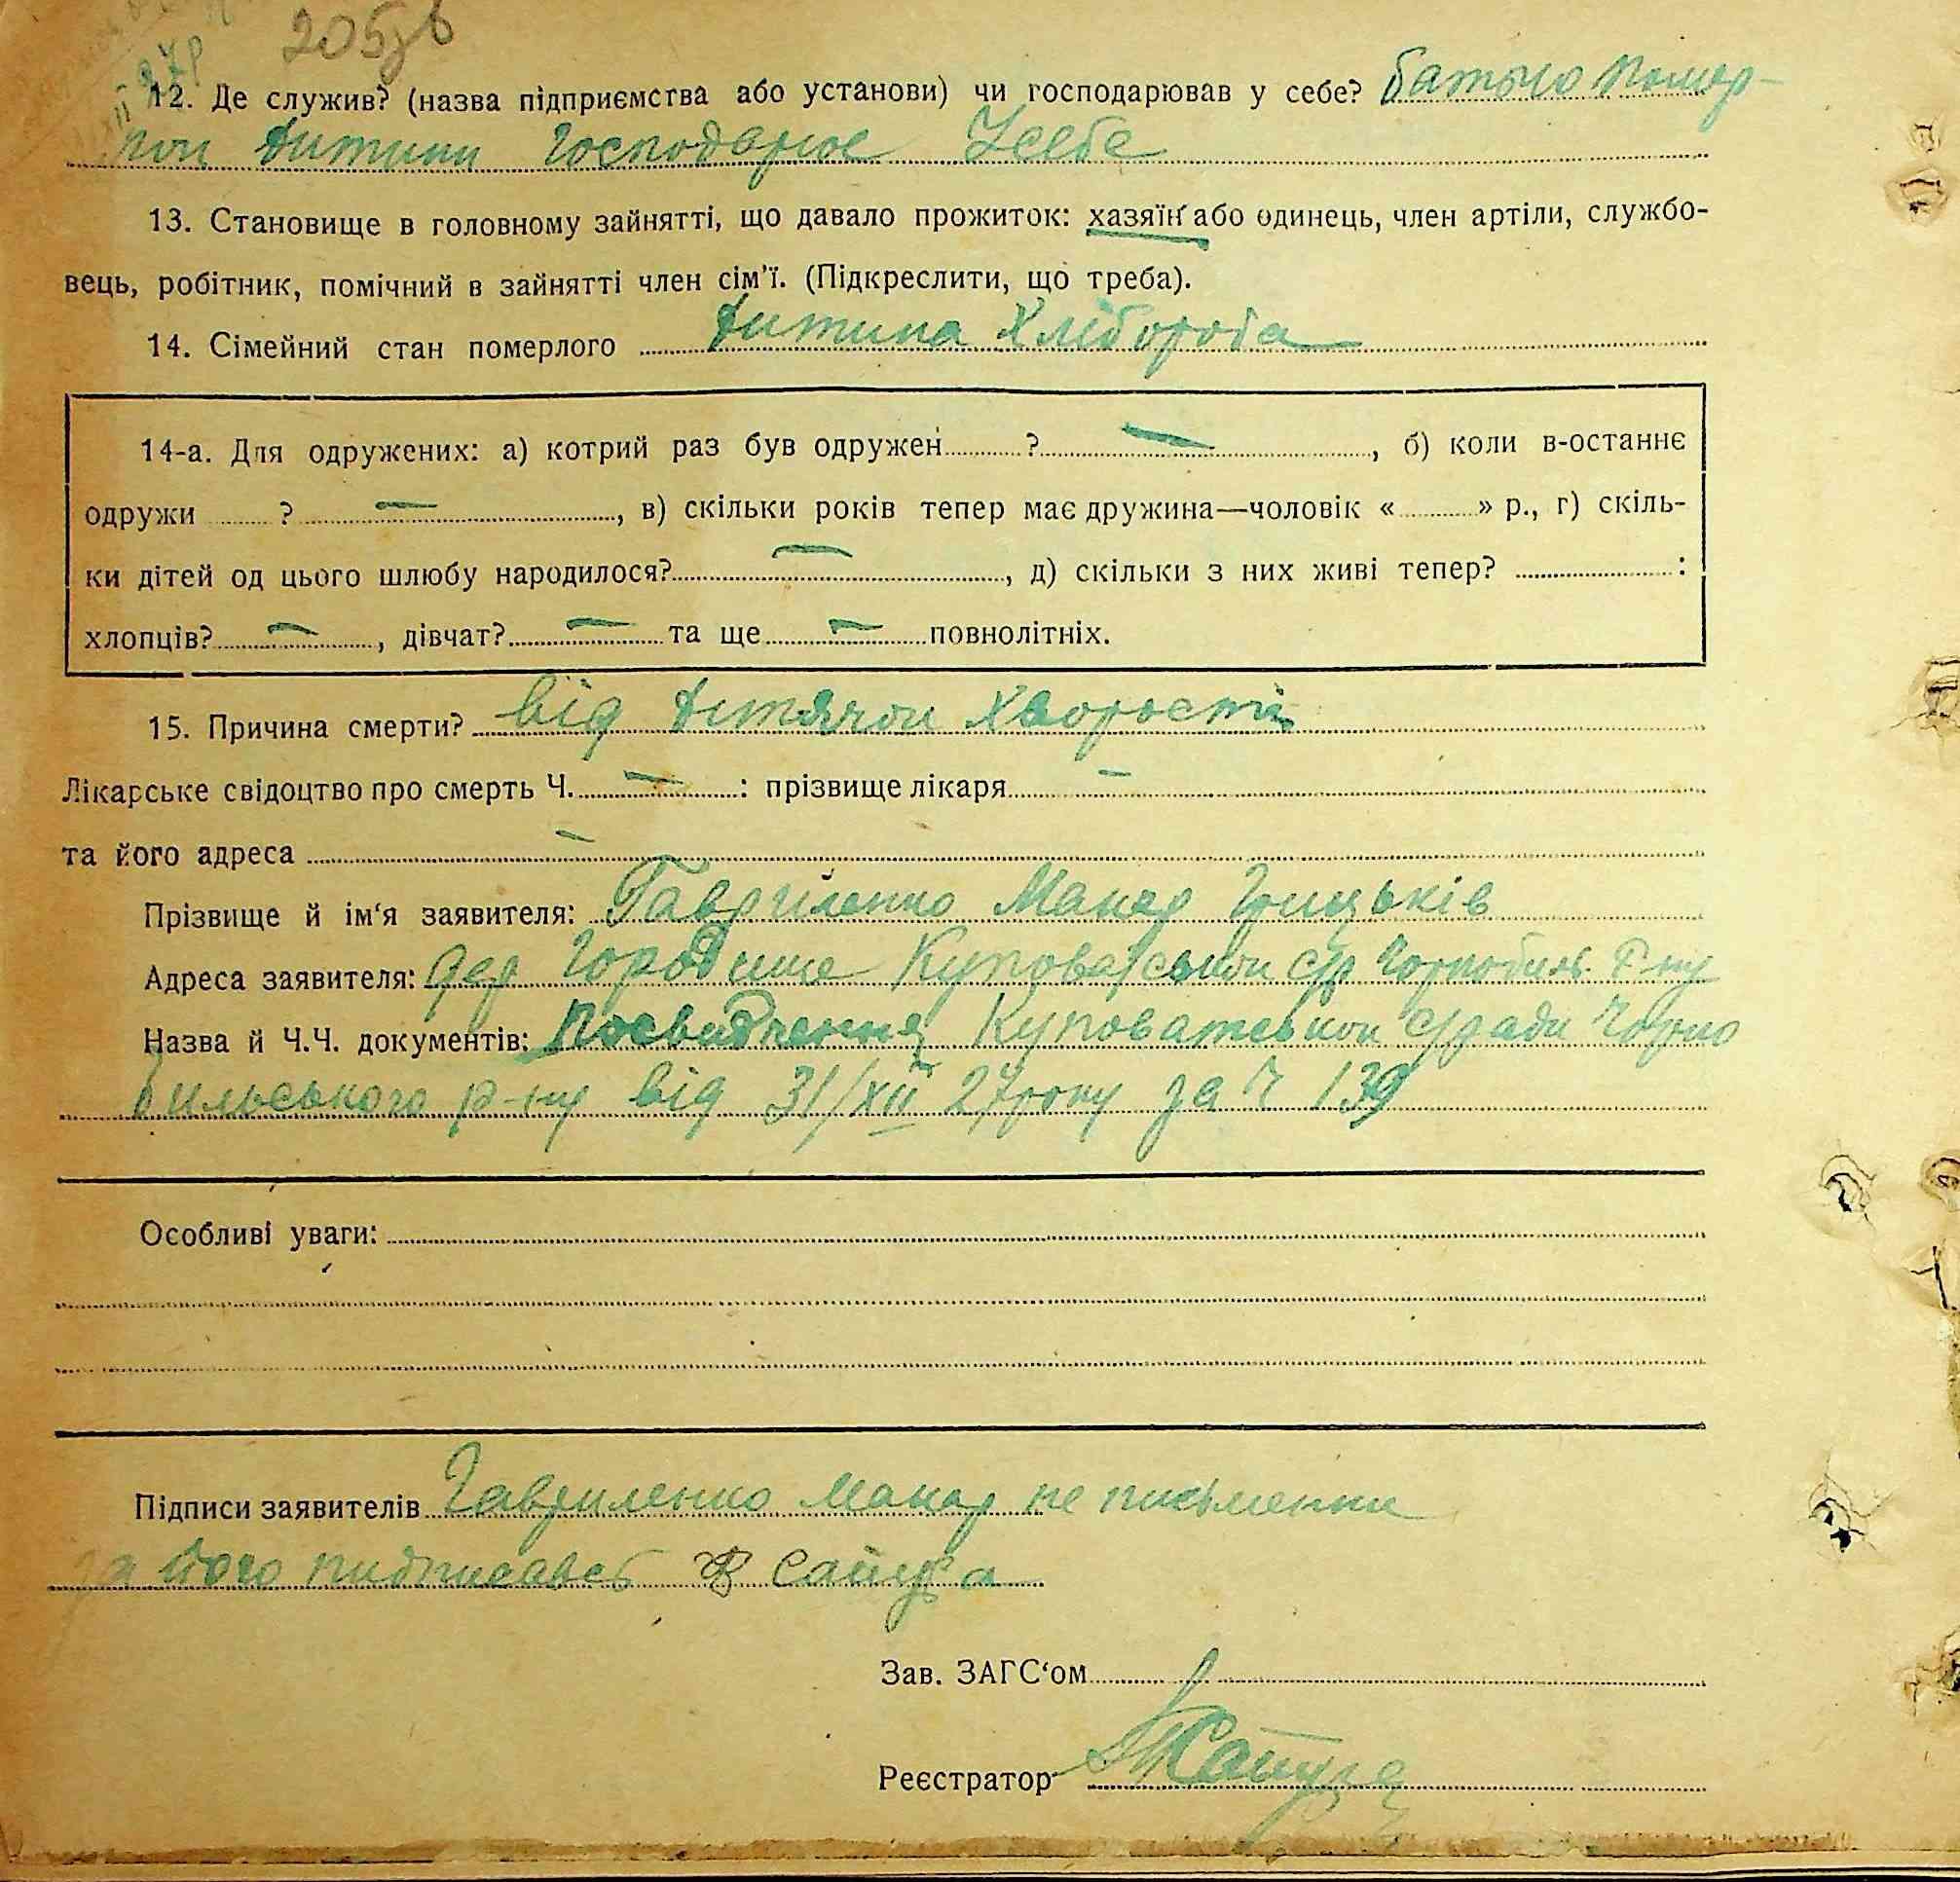 205зв
27р
12. Де служив? (назва підприємства або установи) чи господарював у себе? батько помер-
шои дитини господарює Усебе
13. Становище в головному зайнятті, що давало прожиток: хазяїн або одинець, член артіли, службо-
вець, робітник, помічний в зайнятті член сім'ї. (Підкреслити, що треба).
14. Сімейний стан померлого дитина хлібороба
14-а. Для одружених: а) котрий раз був одружен ? —, б) коли в-останнє
одружи ? —, в) скільки років тепер має дружина—чоловік « » р., г) скіль-
ки дітей од цього шлюбу народилося? —, д) скільки з них живі тепер? :
хлопців? —, дівчат? — та ще — повнолітніх.
15. Причина смерти? від дитячои хворости
Лікарське свідоцтво про смерть Ч. — : прізвище лікаря —
та його адреса —
Прізвище й ім'я заявителя: Гавриленко Макар Грицьків
Адреса заявителя: дер Городище Куповатськои с/р Чорнобиль. Р-ну
Назва й Ч.Ч. документів: Посвидчення Куповатськои с/ради Чорно
бильського р-ну від 31/XII 27 року за Ч 139
Особливі уваги:
Підписи заявителів Гавриленко Макар не письменни
за його пидписавсь
Зав. ЗАГС'ом
Реєстратор